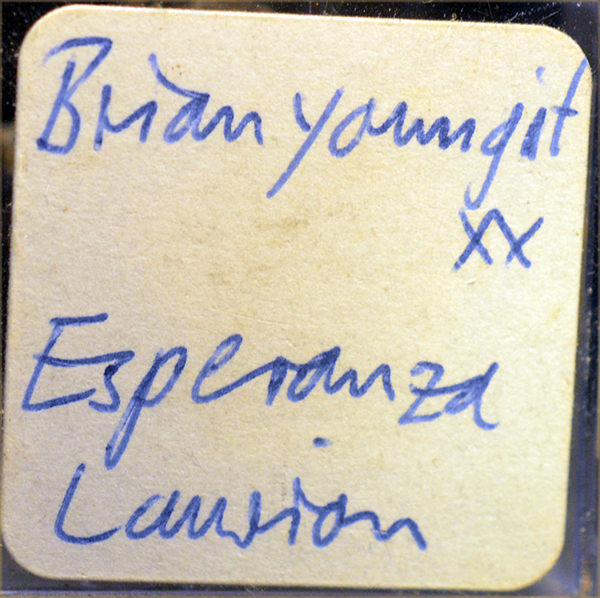 Brian Youngit
xx
Esperanza
Laurion